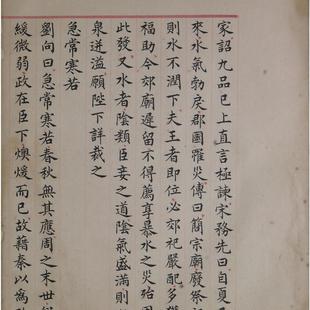 家詔九品已上直言極諫宋務先曰自夏
來水氣勃戾郡國罹災傳曰簡宗廟廢祭
則水不潤下夫王者即位必郊祀嚴配多獲
福助今郊廟遲留不得薦享暴水之災殆因
此發又水者陰類臣妾之道陰氣盛滿則
泉迸溢願陛下詳裁之
急常寒若
劉向曰急常寒若春秋無其應周之末世
緩微弱政在臣下燠煖而已故藉秦以為